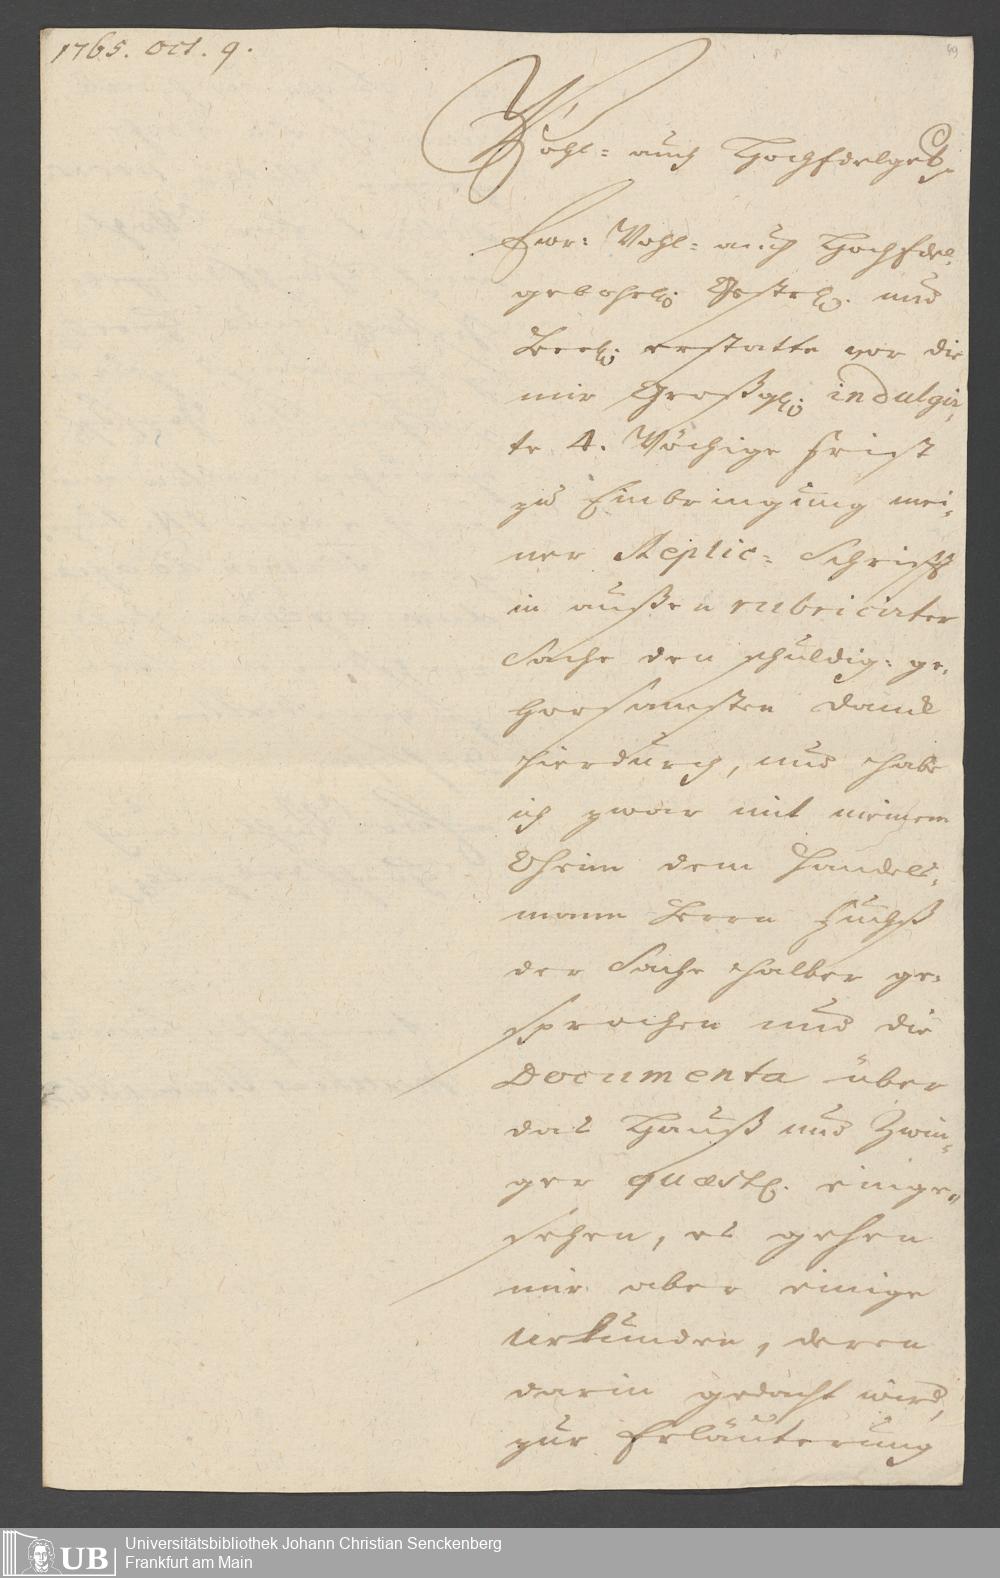 1765. oct. 9.
69
Wohl- auch HochEdelgeb.
Ewr: Wohl- auch HochEdel-
gebohrl. Gestrl. und
Herrl. erstatte vor die
mir Großgl. indulgir-
te 4. Wöchige Frist
zu Einbringung mei-
ner Replic- Schrifft
in außen rubricirter
Sache den schuldig- ge-
horsamsten Danck
hierdurch, und habe
ich zwar mit meinem
Oheim dem Handels-
mann Herrn Fuchß
der Sache halber ge-
sprochen und die
Documenta über
das Hauß und Zwin-
ger quæstl. einge-
sehen, es gehen
mir aber einige
Urkunden, deren
darin gedacht wird,
zur Erläuterung
UB
Universitätsbibliothek Johann Christian Senckenberg
Frankfurt am Main